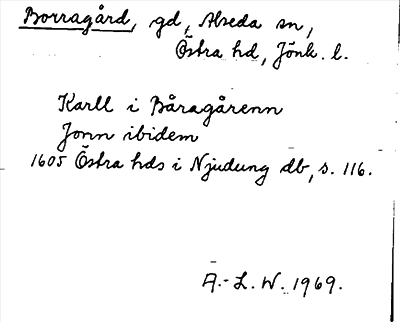 Borragård, gd, Alseda sn,
Östra hd, Jönk. l.
Karll i Båragårenn
Jonn ibidem
1605 Östra hds i Njudung db, s. 116.
A.-L. W. 1969.